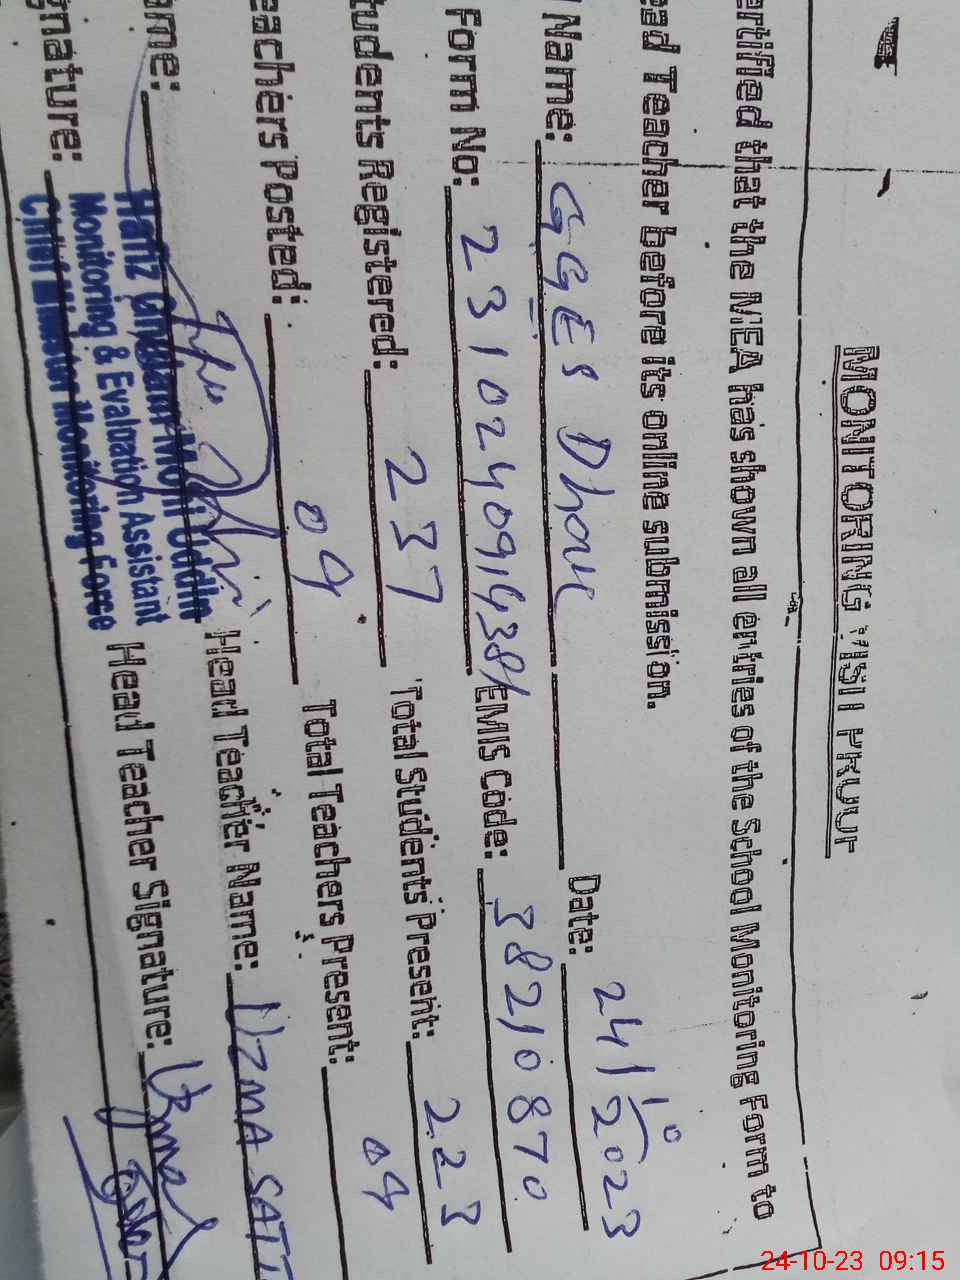 MONITORING VISIT PROOF
ertified that the MEA has shown all entries of the School Monitoring Form to
ead Teacher before its online submission.
Name: GGES Dhok Date: 24/10/2023
Form No: 2310240914381 EMIS Code: 38210870
tudents Registered: 237 Total Students Present: 223
eachers Posted: 09 Total Teachers Present: 09
ame: Hafiz Uddin Head Teacher Name: UZMA SATT
gnature: Monitoring & Evaluation Assistant Head Teacher Signature:
Chief Minister Monitoring Force
24-10-23 09:15